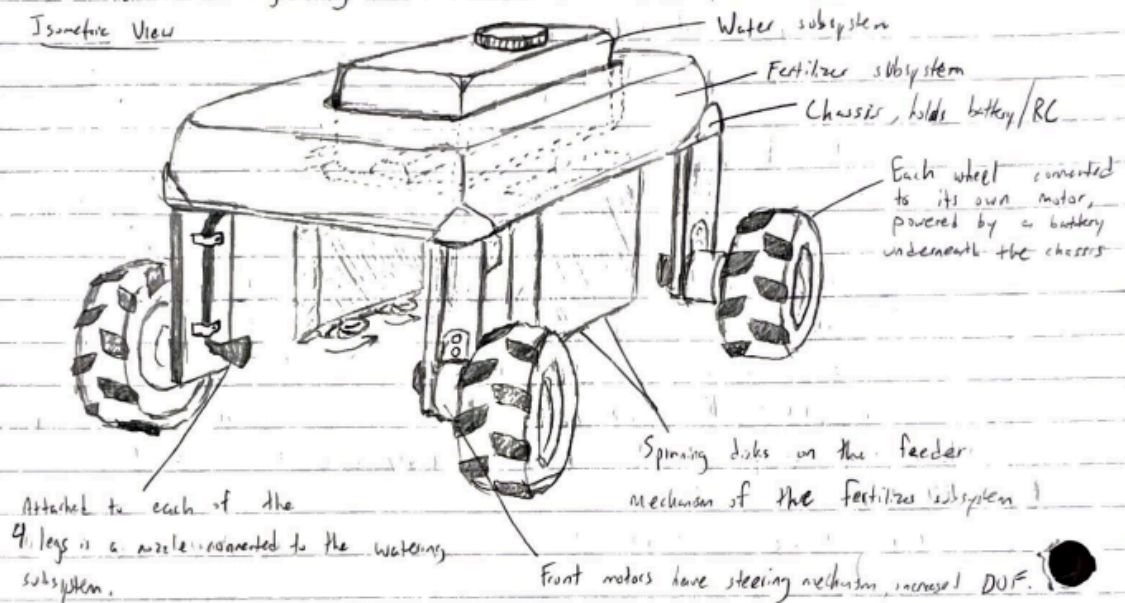 Isometric View
Water subsystem
Fertilizer subsystem
Chassis, holds battery/RC
Each wheel connected
to its own motor,
powered by a battery
underneath the chassis
Spinning disks on the feeder
mechanism of the fertilizer subsystem
Attached to each of the
4 legs is a nozzle connected to the watering
subsystem.
Front motors have steering mechanism, increased DOF.